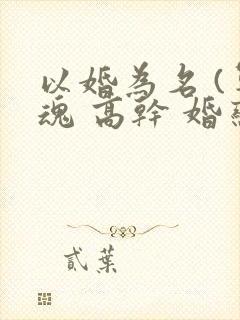 以婚為名(
魂 高幹 婚
貳葉